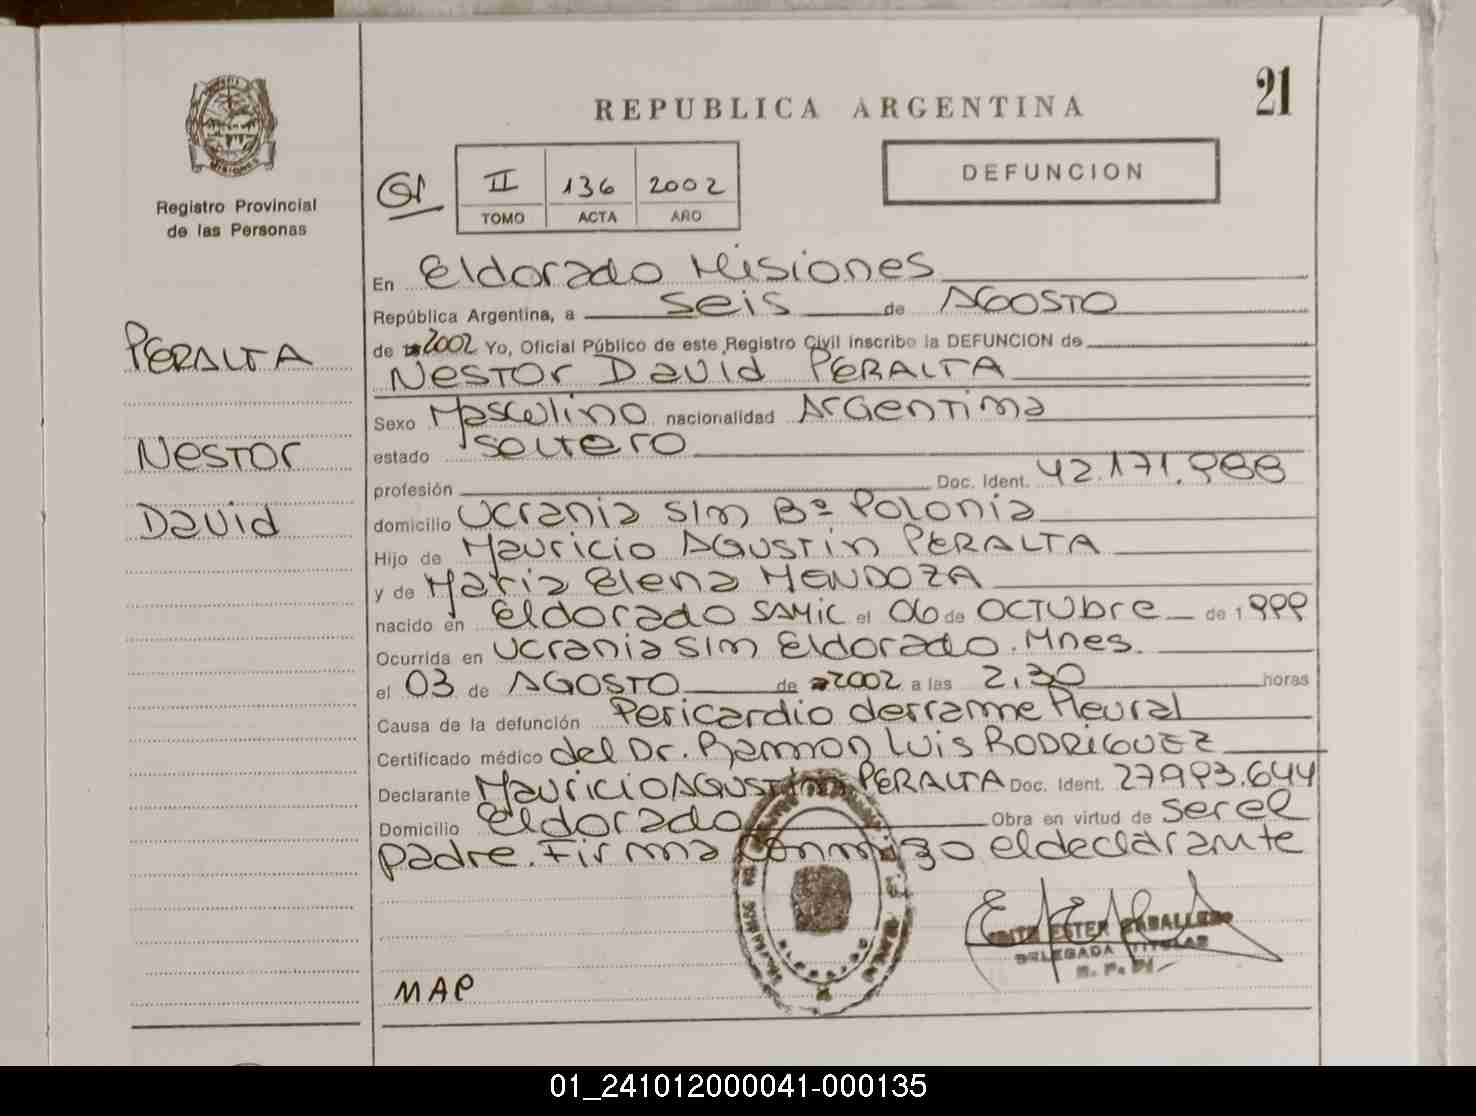 21
REPUBLICA ARGENTINA
DEFUNCION
Registro Provincial
de las Personas
II 136 2002
TOMO ACTA AÑO
PERALTA
NESTOR
David
En Eldorado Misiones
República Argentina, a seis de AGOSTO
de 2002 Yo, Oficial Público de este Registro Civil inscribo la DEFUNCION de
NESTOR David PERALTA
Sexo Masculino nacionalidad Argentina
estado soltero
profesión Doc. Ident. 42.171.988
domicilio Ucrania S/n Bº Polonia
Hijo de Mauricio AGUSTin PERALTA
y de Maria Elena MENDOZA
nacido en Eldorado SAMIC el 06 de OCTUbre de 1999
Ocurrida en Ucrania S/n Eldorado. Mnes.
el 03 de AGOSTO de 2002 a las 2,30 horas
Causa de la defunción Pericardio derrame Pleural
Certificado médico del Dr. Ramon Luis RODRIGUEZ
Declarante Mauricio AGUSTin PERALTA Doc. Ident. 27993.644
Domicilio Eldorado Obra en virtud de ser el
padre. Firma conmigo el declarante
ESTER CABALLERO
DELEGADA TITULAR
MAP
01_241012000041-000135